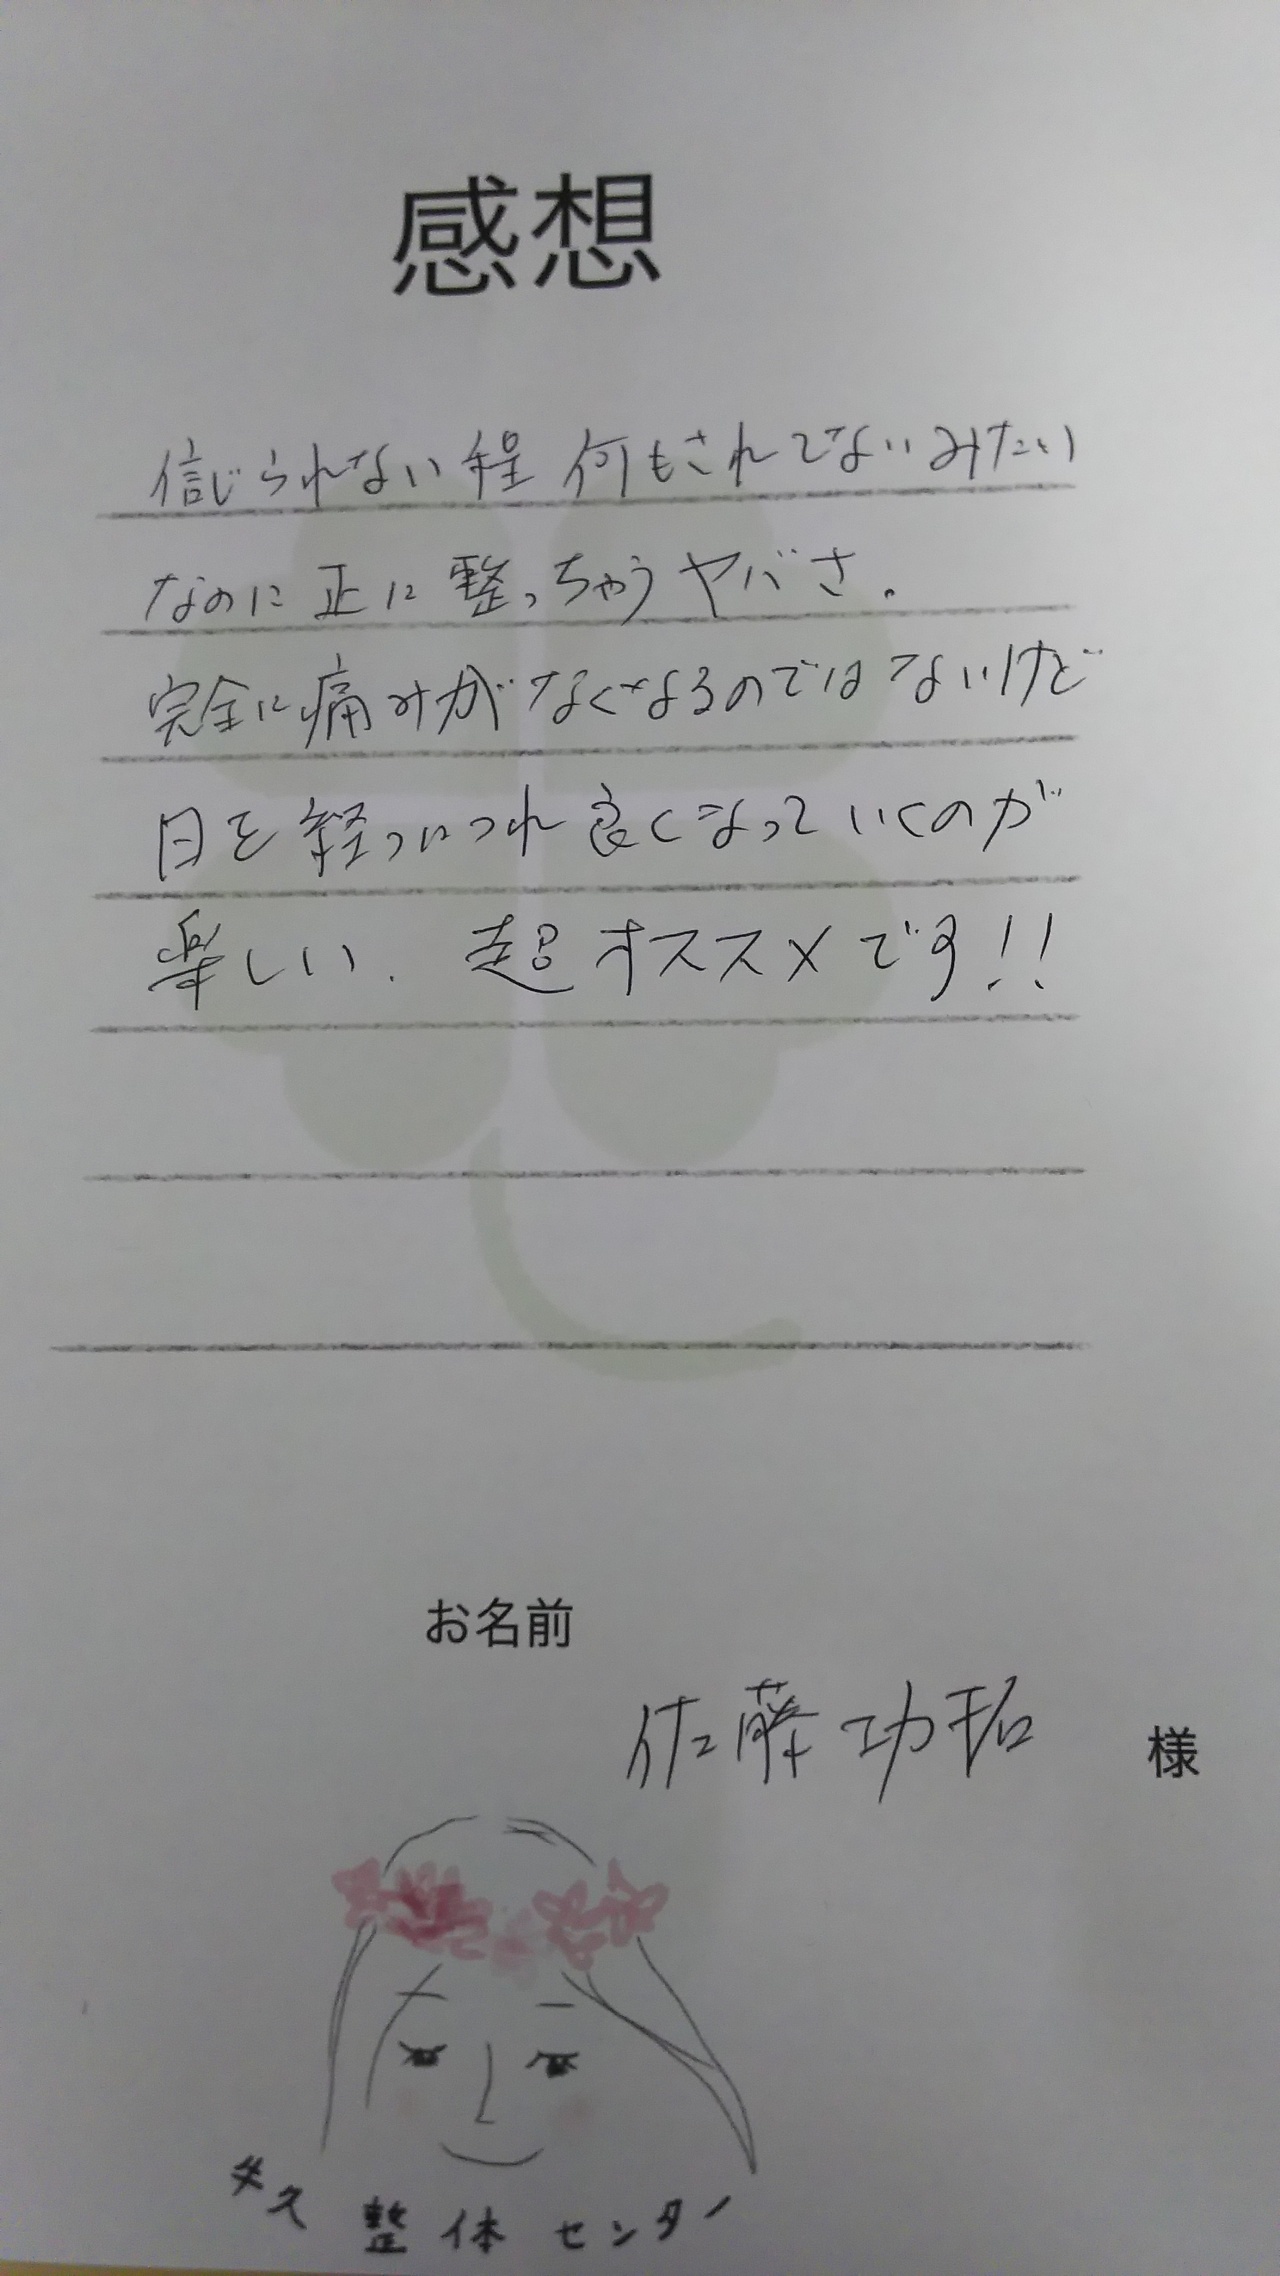 感想
信じられない程 何もされてないみたい
なのに 正に 整っちゃうヤバさ.
完全に痛みがなくなるのではないけど
日を経つにつれ良くなっていくのが
楽しい. 超オススメです!!
お名前
佐藤功拓 様
整体センター